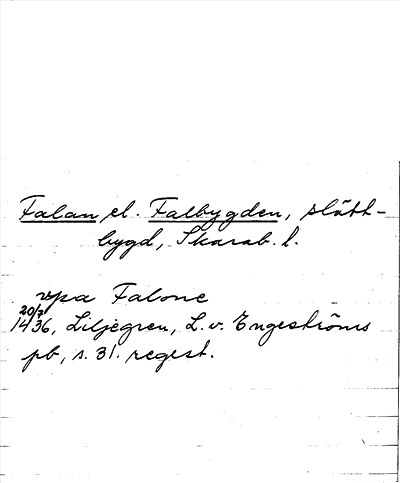 Falan el. Falbygden, slätt-
bygd, Skarab. l.
upa Falone
20/7
1436, Liljegren, L. v. Engeströms
pb, s. 31. regest.